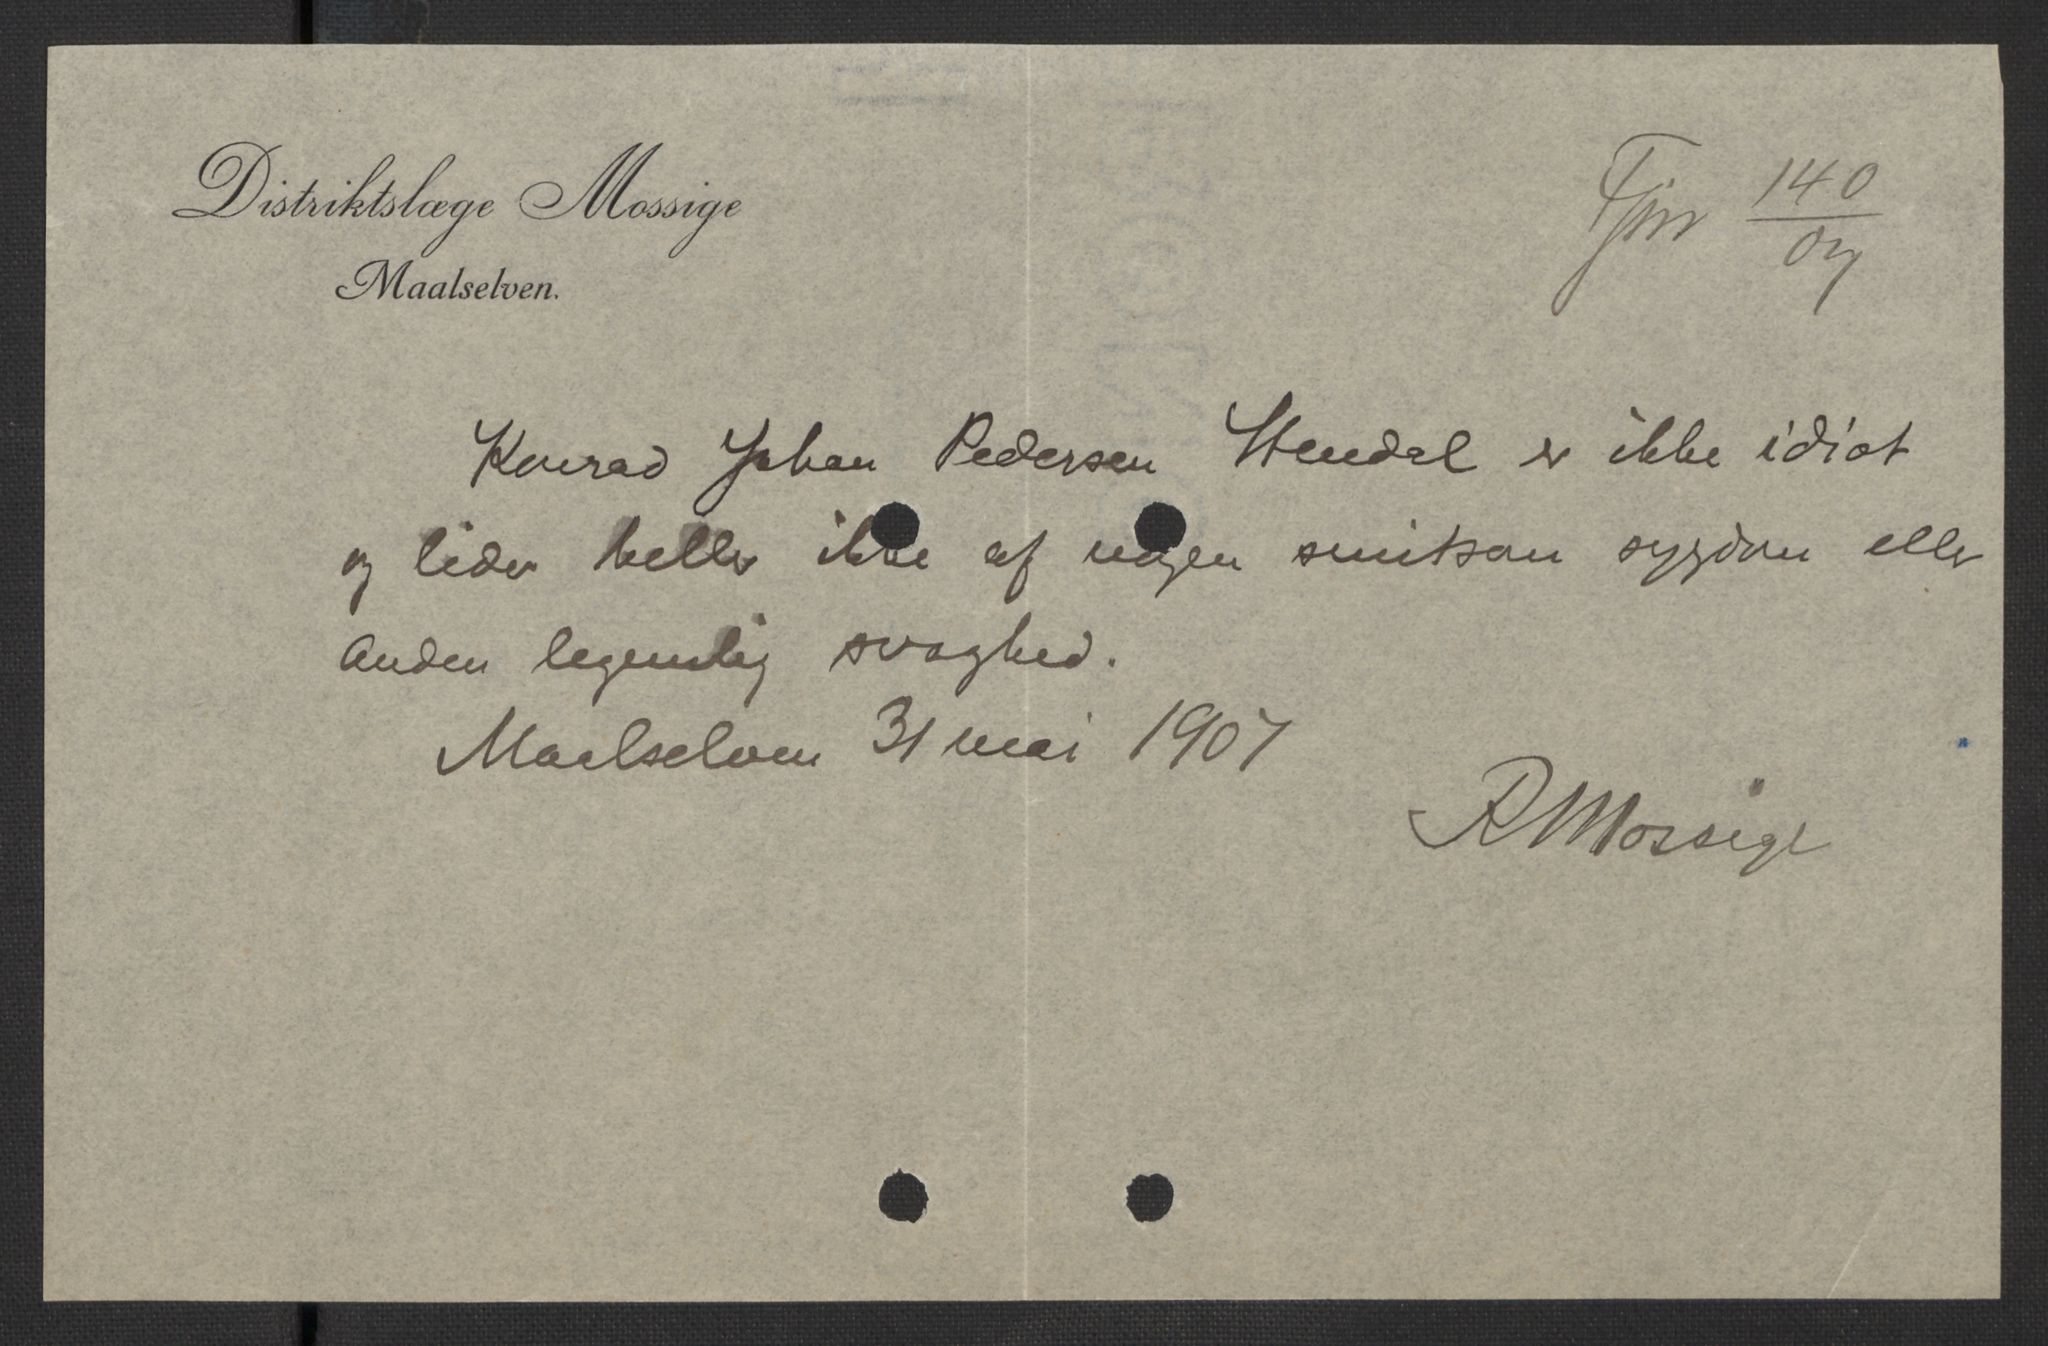 Distriktslæge Mossige
Maalselven.
Tjnr 140/07
Konrad Johan Pedersen Stendal er ikke idiot
og lider heller ikke af nogen smitsom sygdom eller
anden legemlig svaghed.
Maalselven 31 mai 1907
R Mossige